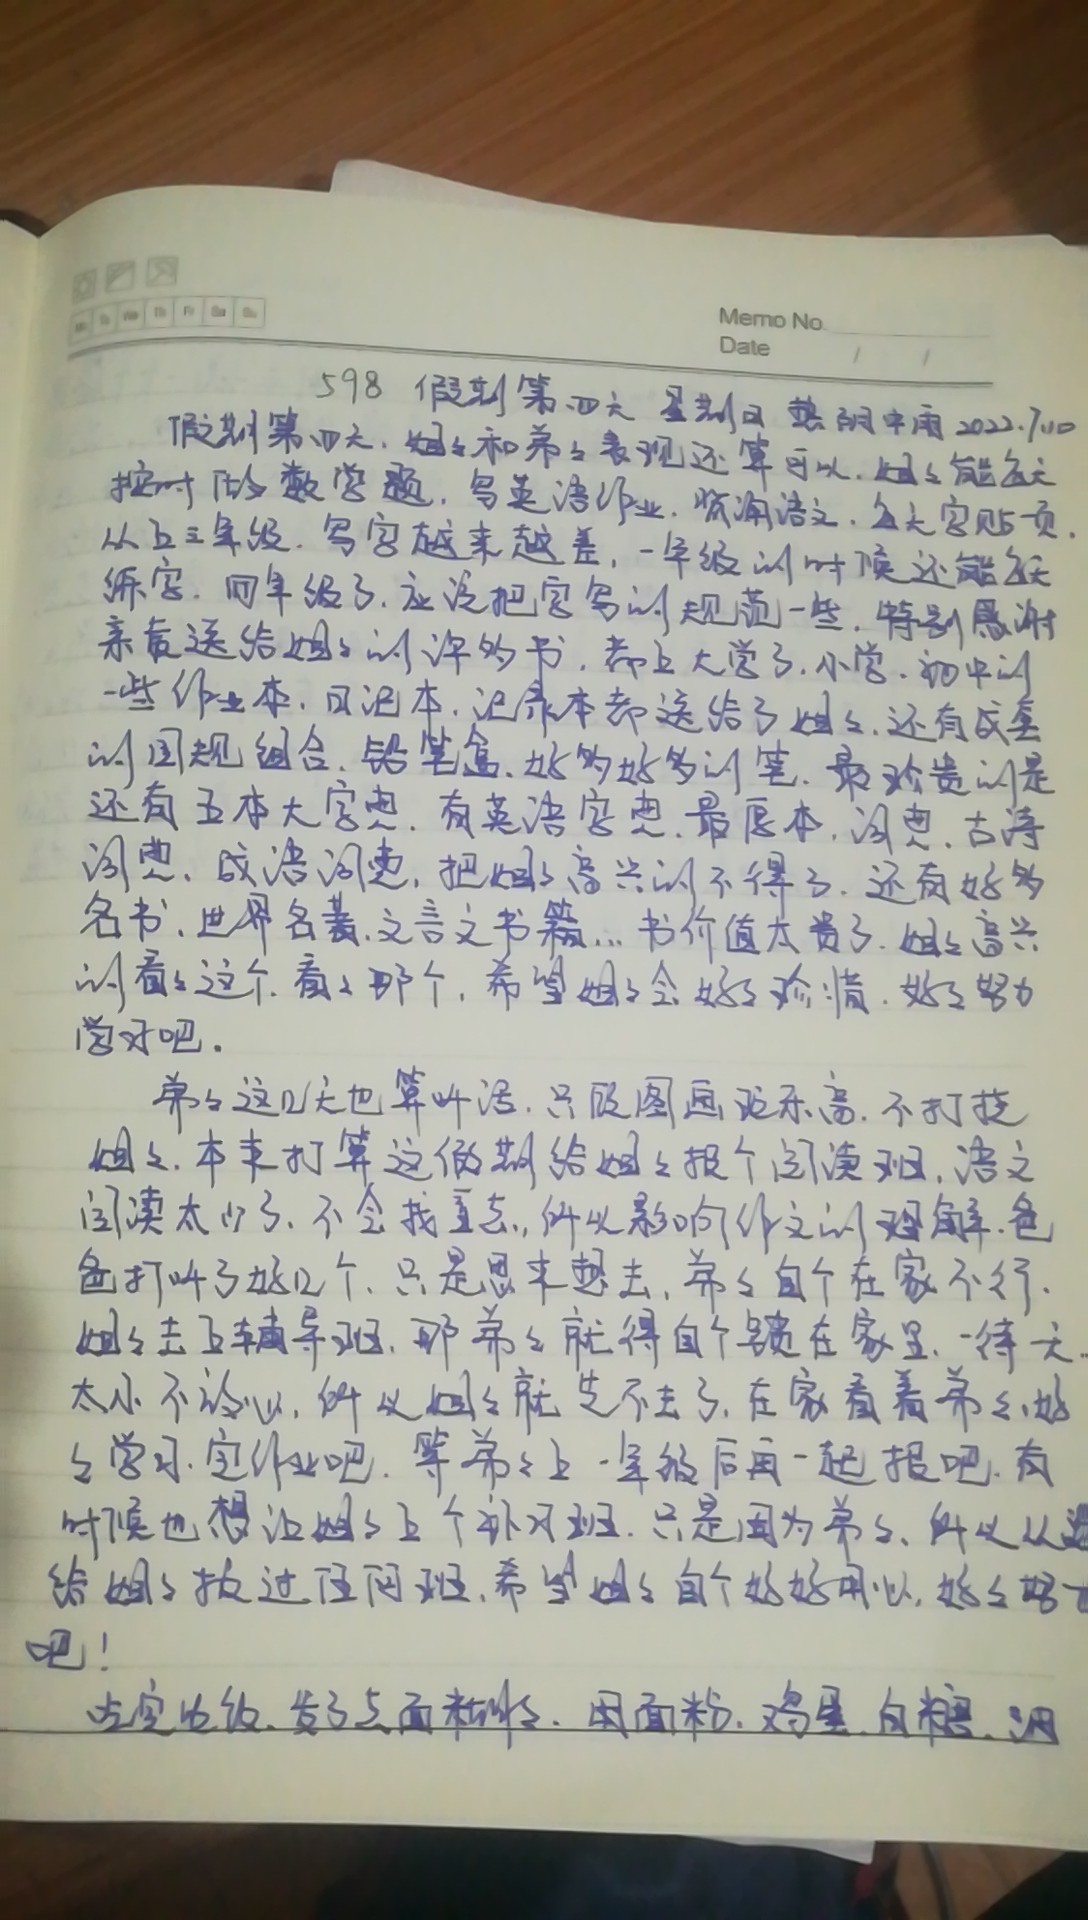 Memo No.
Date / /
598 假期第四天 星期日 热阴中雨 2022.7.10
假期第四天. 姐々和弟々表现还算可以. 姐々能每天
按时做数学题. 写英语作业. 预涌语文. 每天字贴5页.
从上三年级. 写字越来越差, 一年级的时候还能每天
练字. 四年级了. 应该把字写的规范一些. 特别感谢
亲友送给姐々的许多书. 都上大学了. 小学. 初中的
一些作业本. 日记本. 记录本都送给了姐々. 还有成套
的圆规组合. 铅笔盒. 好多好多的笔. 最珍贵的是
还有五本大字典. 有英语字典. 最厚本. 词典. 古诗
词典. 成语词典. 把姐々高兴的不得了. 还有好多
名书. 世界名著. 文言文书籍... 书价值太贵了. 姐々高兴
的看々这个. 看々那个. 希望姐々会好々珍惜. 好々努力
学习吧.
弟々这几天也算听话. 只股图画班乐高. 不打扰
姐々. 本来打算这假期给姐々报个阅读班. 语文
阅读太少了. 不会找重点. 所以影响作文的理解. 爸
爸打听了好几个. 只是思来想去. 弟々自个在家不行.
姐々去上辅导班. 那弟々就得自个锁在家里. 一待一天..
太小不放心. 所以姐々就先不去了. 在家看着弟々. 好
々学习. 完作业吧. 等弟々上一年级后再一起报吧. 有
时候也想让姐々上个补习班. 只是因为弟々. 所以从没
给姐々报过任何班. 希望姐々自个好好用心. 好々努力
吧!
发了点面糊々. 用面粉. 鸡蛋. 白糖.